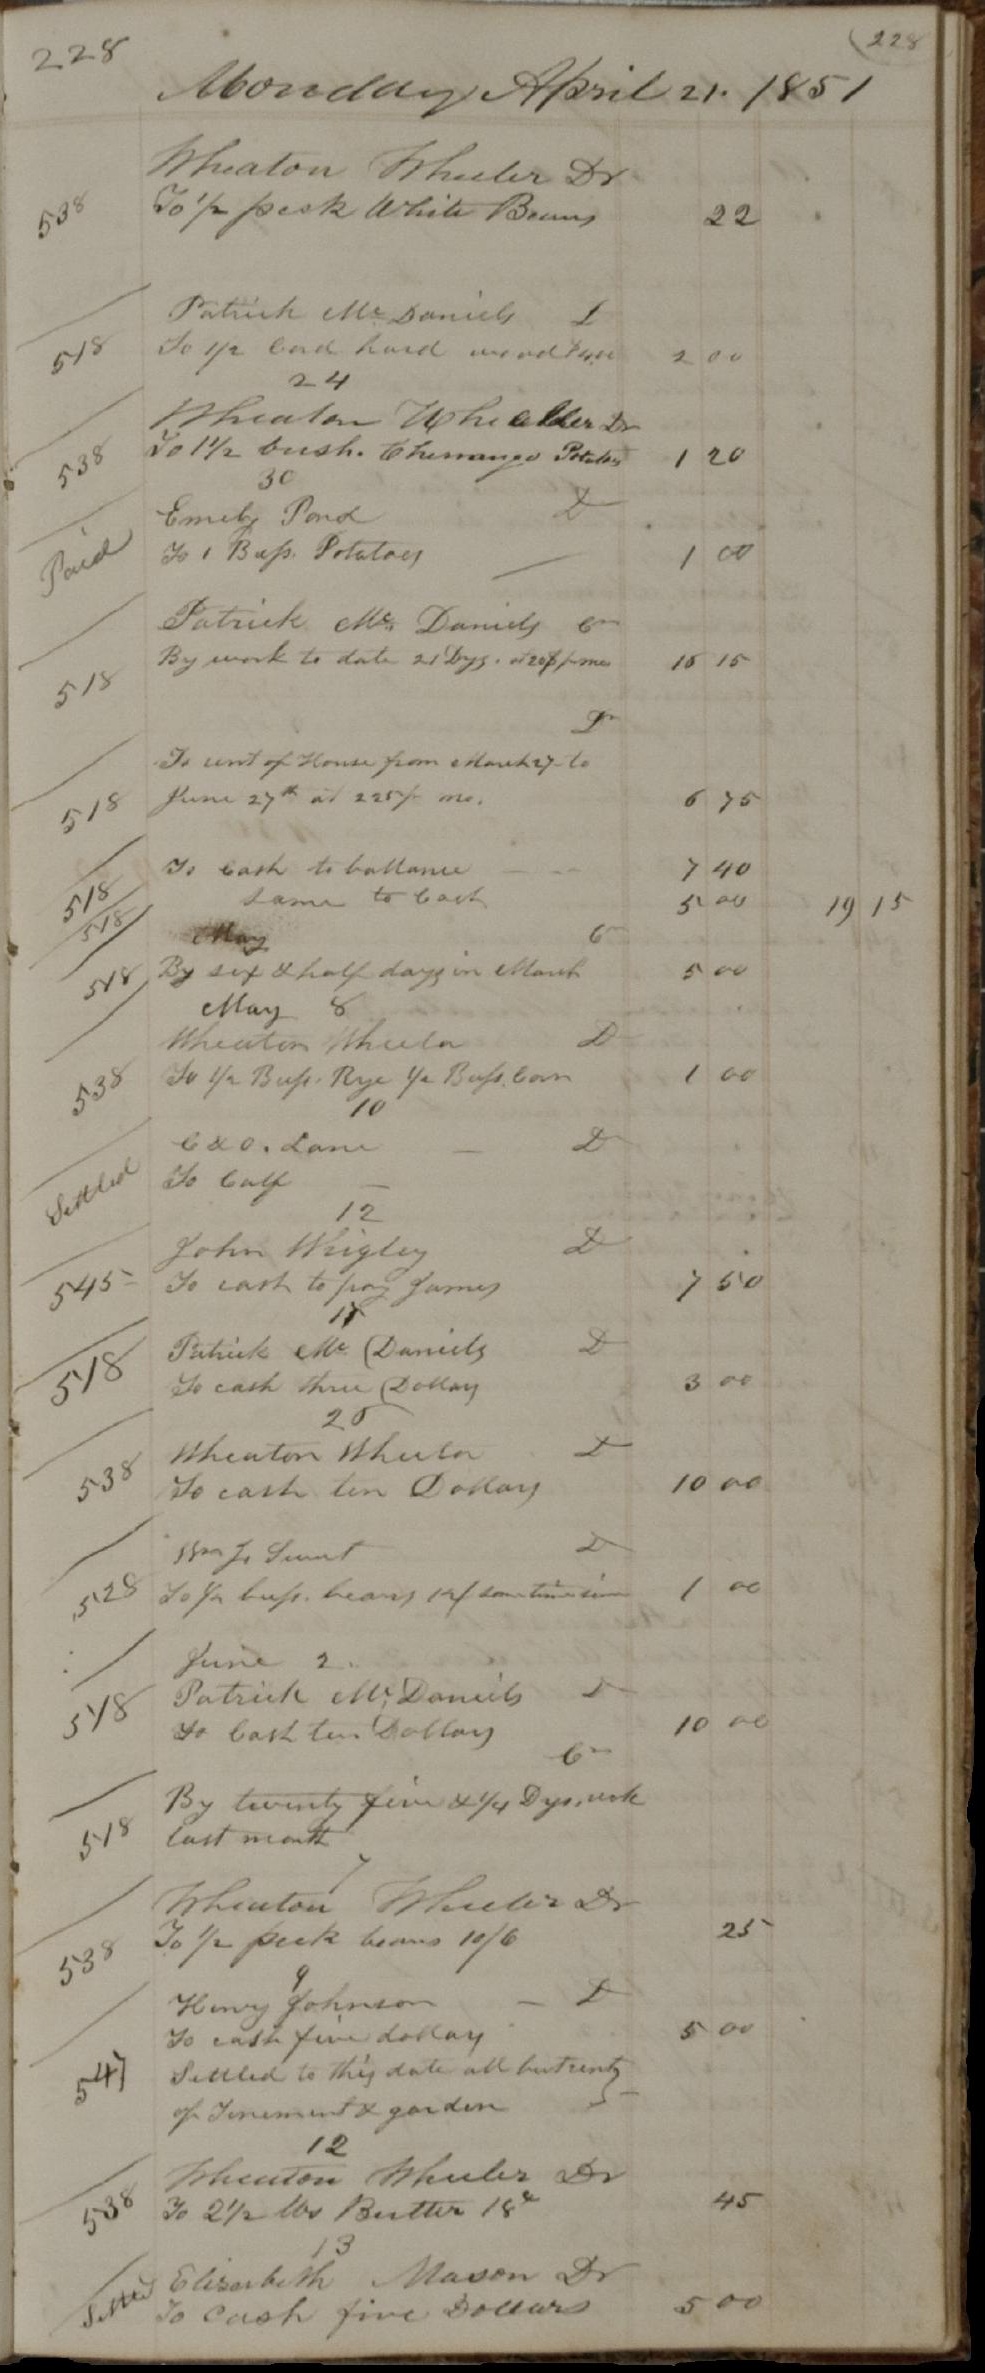 228
228
Monday April 21. 1851
Wheaton Wheeler Dr
538 To 1/2 peck White Beans 22
Patrick Mc Daniels D
518 To 1/2 Cord hard wood 2 00
24
Wheaton Wheeler Dr
538 To 1 1/2 bush. Chenango Potatoes 1 20
30
Emely Pond D
Paid To 1 Bush. Potatoes 1 00
Patrick Mc Daniels Cr
518 By work to date 21 Dys. at 20$ p mo 15
Dr
To rent of House from March 27 to
518 June 27th at 225/ mo. 6 75
518 To Cash to ballance 7 40
518 Same to Cash 5 00 19 15
May Cr
518 By six & half days in March 5 00
May 8
Wheaton Wheeler D
538 To 1/2 Bush. Rye 1/2 Bush. Corn 1 00
10
C & O. Lane D
Settled To Calf
12
John Wrigley D
545 To cash to pay James 7 50
Patrick Mc Daniels D
518 To cash three Dollars 3 00
Wheaton Wheeler D
538 To cash ten Dollars 10 00
Wm J. Sweet D
528 To 1/2 bush. beans 12/ some time since 1 00
June 2.
Patrick Mc Daniels D
518 To Cash ten Dollars 10 00
Cr
By twenty five & 1/4 Dys. work
518 last month
7
Wheaton Wheeler Dr
538 To 1/2 peck beans 10/6 25
9
Henry Johnson D
To cash five dollars 5 00
547 Settled to this date all but rent
of Tenement & garden
12
Wheaton Wheeler Dr
538 To 2 1/2 lbs Butter 18c 45
13
Elizabeth Mason Dr
Settled To Cash five Dollars 5 00